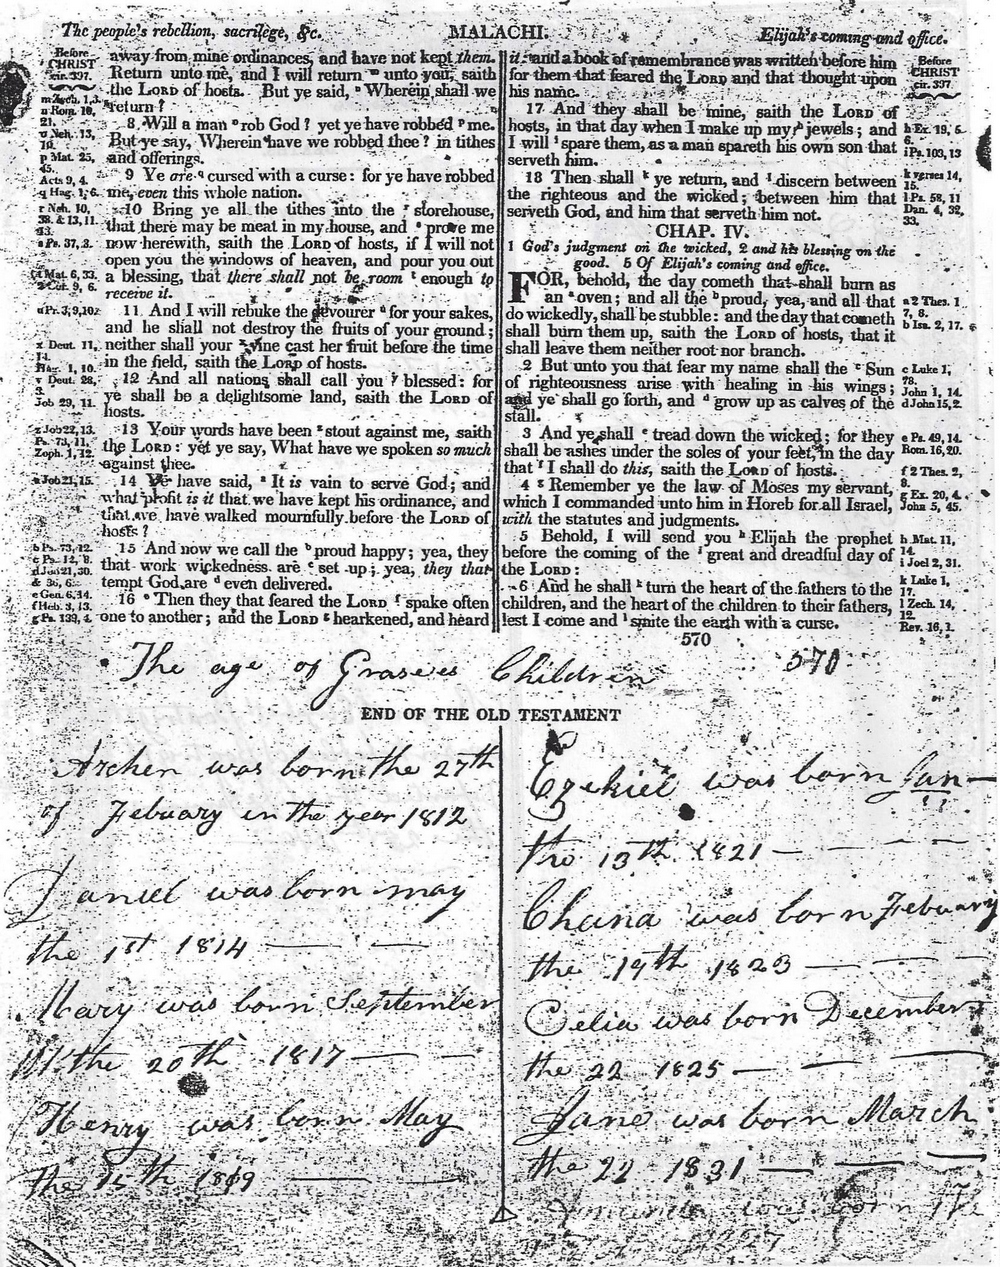 The people's rebellion, sacrilege, &c.
MALACHI.
Elijah's coming and office.
Before
CHRIST
cir. 397.
m Zech. 1, 3.
n Rom. 10,
21.
o Neh. 13,
10.
p Mat. 25,
45.
Acts 9, 4.
q Hag. 1, 6.
r Neh. 10,
38. & 13, 11.
s Ps. 37, 3.
t Mat. 6, 33.
2 Cor. 9, 6.
u Pr. 3, 9, 10.
x Deut. 11,
14.
Hag. 1, 10.
y Deut. 28,
3.
Job 29, 11.
z Job 22, 13.
Ps. 73, 11.
Zeph. 1, 12.
a Job 21, 15.
b Ps. 73, 12.
c Ps. 12, 8.
d Job 21, 30.
& 36, 6.
e Gen. 6, 14.
f Heb. 3, 13.
g Ps. 139, 4.
away from mine ordinances, and have not kept them.
Return unto me, and I will return m unto you, saith
the LORD of hosts. But ye said, n Wherein shall we
return?
8 Will a man o rob God? yet ye have robbed p me.
But ye say, Wherein have we robbed thee? in tithes
and offerings.
9 Ye are q cursed with a curse: for ye have robbed
me, even this whole nation.
10 Bring ye all the tithes into the r storehouse,
that there may be meat in my house, and s prove me
now herewith, saith the LORD of hosts, if I will not
open you the windows of heaven, and pour you out
a blessing, that there shall not be room t enough to
receive it.
11 And I will rebuke the devourer u for your sakes,
and he shall not destroy the fruits of your ground;
neither shall your x vine cast her fruit before the time
in the field, saith the LORD of hosts.
12 And all nations shall call you y blessed: for
ye shall be a delightsome land, saith the LORD of
hosts.
13 Your words have been z stout against me, saith
the LORD: yet ye say, What have we spoken so much
against thee.
14 Ye have said, a It is vain to serve God; and
what profit is it that we have kept his ordinance, and
that we have walked mournfully before the LORD of
hosts?
15 And now we call the b proud happy; yea, they
that work wickedness are c set up; yea, they that
tempt God are d even delivered.
16 e Then they that feared the LORD f spake often
one to another; and the LORD g hearkened, and heard
it: and a book of remembrance was written before him
for them that feared the LORD and that thought upon
his name.
17 And they shall be mine, saith the LORD of
hosts, in that day when I make up my h jewels; and
I will i spare them, as a man spareth his own son that
serveth him.
18 Then shall k ye return, and l discern between
the righteous and the wicked; between him that
serveth God, and him that serveth him not.
CHAP. IV.
1 God's judgment on the wicked, 2 and his blessing on the
good. 5 Of Elijah's coming and office.
FOR, behold, the day cometh that shall burn as
an a oven; and all the b proud, yea, and all that
do wickedly, shall be stubble: and the day that cometh
shall burn them up, saith the LORD of hosts, that it
shall leave them neither root nor branch.
2 But unto you that fear my name shall the c Sun
of righteousness arise with healing in his wings;
and ye shall go forth, and d grow up as calves of the
stall.
3 And ye shall e tread down the wicked; for they
shall be ashes under the soles of your feet, in the day
that f I shall do this, saith the LORD of hosts.
4 g Remember ye the law of Moses my servant,
which I commanded unto him in Horeb for all Israel,
with the statutes and judgments.
5 Behold, I will send you h Elijah the prophet
before the coming of the i great and dreadful day of
the LORD:
6 And he shall k turn the heart of the fathers to the
children, and the heart of the children to their fathers,
lest I come and l smite the earth with a curse.
Before
CHRIST
cir. 397
h Ex. 19, 5.
i Ps. 103, 13
k verses 14,
15.
l Ps. 58, 11
Dan. 4, 32,
33.
a 2 Thes. 1
7, 8.
b Isa. 2, 17.
c Luke 1,
78.
John 1, 14.
d John 15, 2.
e Ps. 49, 14.
Rom. 16, 20.
f 2 Thes. 2,
8.
g Ex. 20, 4.
John 5, 45.
h Mat. 11,
14.
i Joel 2, 31.
k Luke 1,
17.
l Zech. 14,
12.
Rev. 16, 1.
570
The age of Children 570
END OF THE OLD TESTAMENT
Archer was born the 27th
of Febuary in the year 1812
Daniel was born may
the 1st 1814
Mary was born September
the 20th 1817
Henry was born May
the 15th 1819
Ezekiel was born Jan
the 13th 1821
Chana was born Febuary
the 19th 1823
Celia was born December
the 22 1825
Jane was born March
the 22 1831
was born the